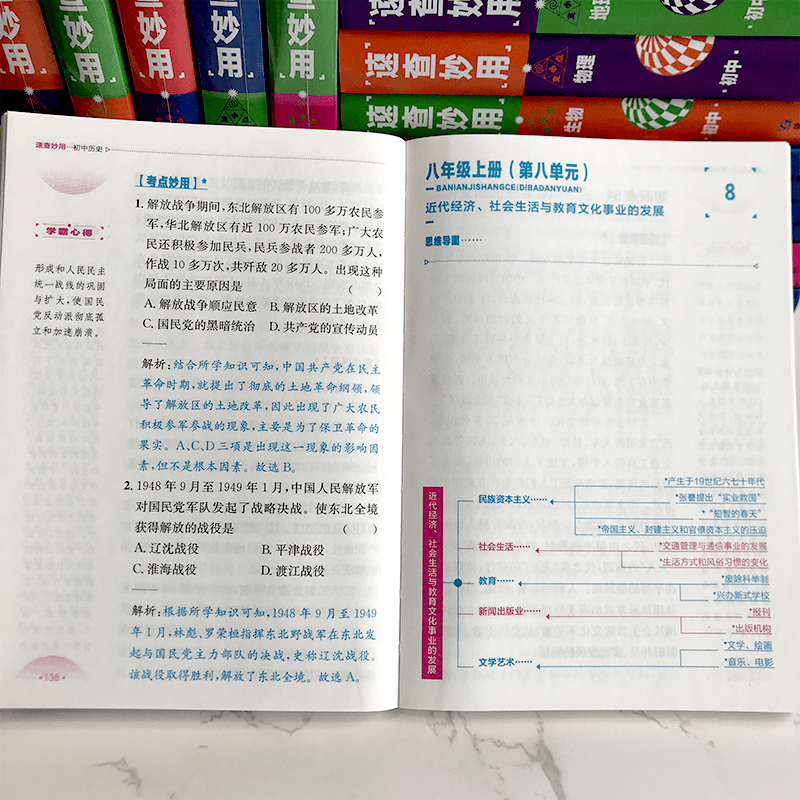 妙用
妙用
妙用
妙用
妙用
速查妙用
地理
初中
速查妙用
物理
初中
速查妙用
生物
初中
速查妙用…初中历史
【考点妙用】*
学霸心得
形成和人民民主
统一战线的巩固
与扩大,使国民
党反动派彻底孤
立和加速崩溃。
1. 解放战争期间,东北解放区有 100 多万农民参
军,华北解放区有近 100 万农民参军;广大农
民还积极参加民兵,民兵参战者 200 多万人,
作战 10 多万次,共歼敌 20 多万人。出现这种
局面的主要原因是 ( )
A. 解放战争顺应民意 B. 解放区的土地改革
C. 国民党的黑暗统治 D. 共产党的宣传动员
解析:结合所学知识可知,中国共产党在民主
革命时期,就提出了彻底的土地革命纲领,领
导了解放区的土地改革,因此出现了广大农民
积极参军参战的现象,主要是为了保卫革命的
果实。A、C、D 三项是出现这一现象的影响因
素,但不是根本因素。故选 B。
2. 1948 年 9 月至 1949 年 1 月,中国人民解放军
对国民党军队发起了战略决战。使东北全境
获得解放的战役是 ( )
A. 辽沈战役 B. 平津战役
C. 淮海战役 D. 渡江战役
解析:根据所学知识可知,1948 年 9 月至 1949
年 1 月,林彪、罗荣桓指挥东北野战军在东北发
起与国民党主力部队的决战,史称辽沈战役。
该战役取得胜利,解放了东北全境。故选 A。
·138·
八年级上册(第八单元)
BANIANJISHANGCE(DIBADANYUAN)
8
近代经济、社会生活与教育文化事业的发展
思维导图……
近代经济、社会生活与教育文化事业的发展
民族资本主义……
*产生于19世纪六七十年代
*张謇提出“实业救国”
*“短暂的春天”
*帝国主义、封建主义和官僚资本主义的压迫
社会生活……
*交通管理与通信事业的发展
*生活方式和风俗习惯的变化
教育……
*废除科举制
*兴办新式学校
新闻出版业……
*报刊
*出版机构
文学艺术……
*文学、绘画
*音乐、电影